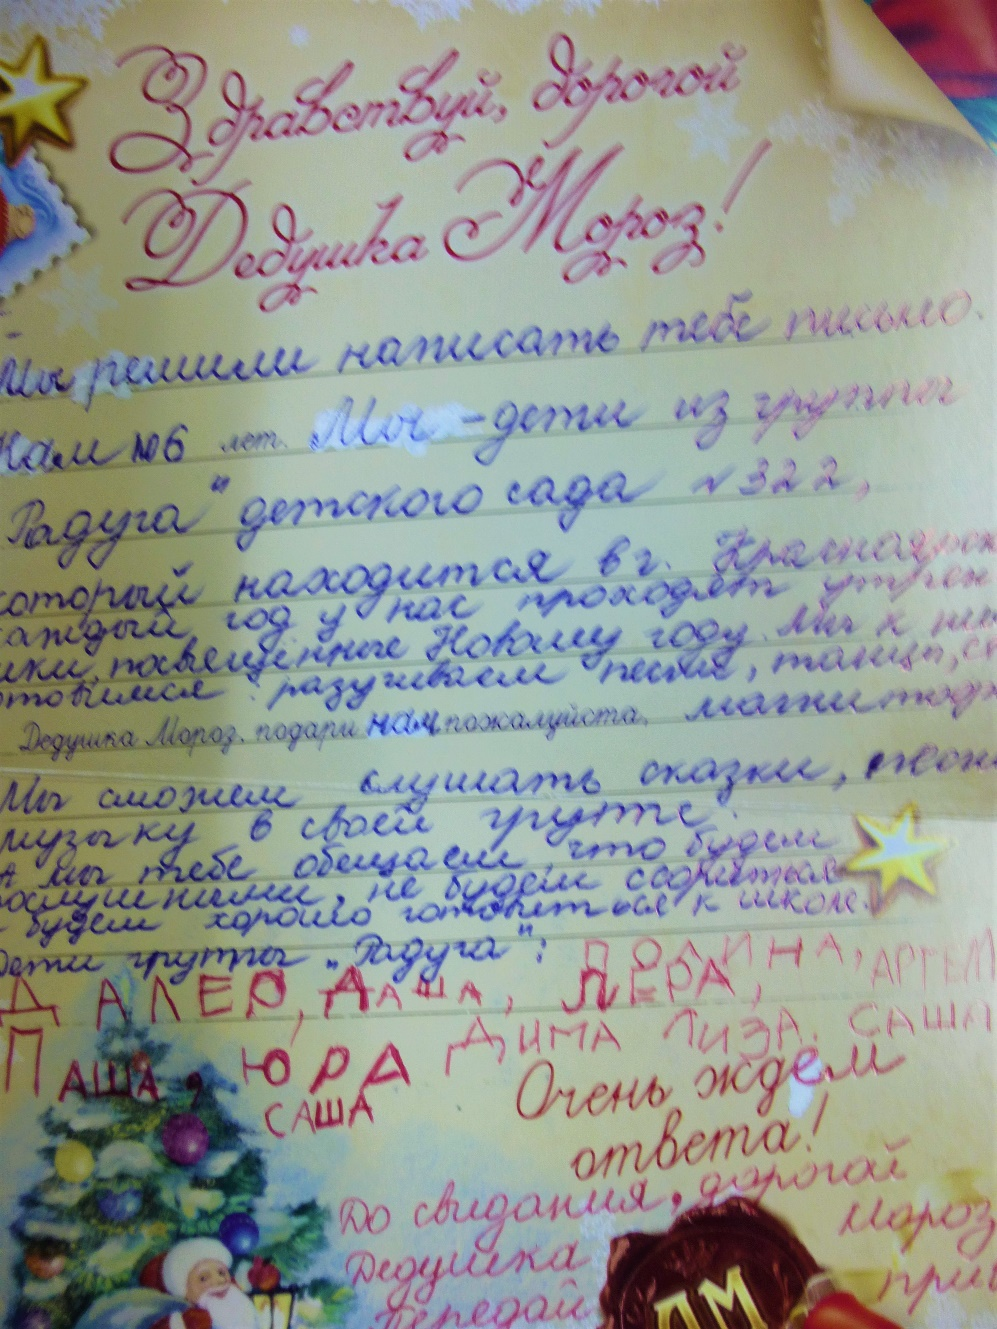 Здравствуй, дорогой
Дедушка Мороз!
Мы решили написать тебе письмо.
Нам по 6 лет. Мы - дети из группы
Радуга" детского сада №322,
который находится в г. Красноярск
каждый год у нас проходят утрен
ники, посвещённые Новому году. Мы к ним
готовимся: разучиваем песни, танцы,
Дедушка Мороз, подари нам пожалуйста,
Мы сможем слушать сказки,
музыку в своей группе.
А мы тебе обещаем, что будем
послушными, не будем ссориться
будем хорошо готовиться к школе.
Дети группы „Радуга": ПОЛИНА, АРТЕМ
ДАЛЕР, ДАША, ЛЕРА,
ПАША, ЮРА ДИМА ЛИЗА. САША
САША
Очень ждем
ответа!
До свидания, дорогой
Дедушка Мороз
передай при
ДМ